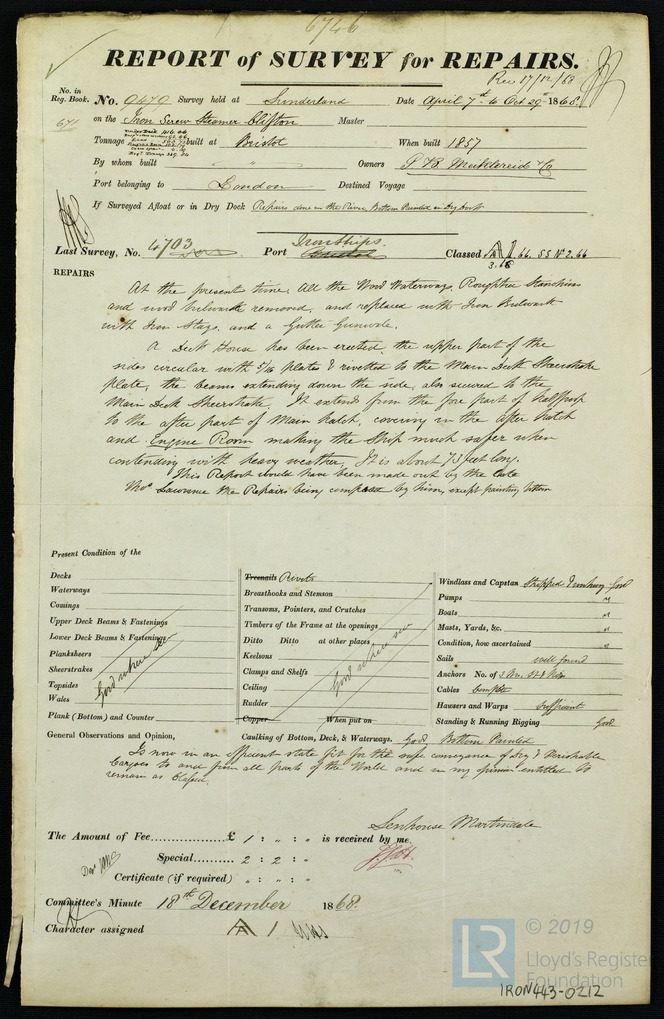 6746
REPORT of SURVEY for REPAIRS.
Rec 17/12/68
No. in
Reg. Book. No. 9479 Survey held at Sunderland Date April 7th to Oct 29th 1868
671 on the Iron Screw Steamer Clifton Master
Tonnage built at Bristol When built 1857
By whom built " " Owners & Co
Port belonging to London Destined Voyage
If Surveyed Afloat or in Dry Dock Repairs done in the River, Bottom Painted in Dry Dock
Last Survey, No. 4703 Port Iron Ships. Classed A1 66. SS No 2. 66
3.68
REPAIRS
At the present time, All the Wood Waterways, Roughtree Stanchions
and wood bulwarks removed, and replaced with Iron Bulwark
with Iron Stays, and a Gutter Gunwale.
A Deck House has been erected, the upper part of the
sides circular with 5/16 plates & rivetted to the Main Deck Sheerstrake
plate, the beams extending down the side, also secured to the
Main Deck Sheerstrake. It extends from the fore part of halfpoop
to the after part of Main hatch, covering in the After hatch
and Engine Room making the Ship much safer when
contending with heavy weather. It is about 73 feet long.
This Report would have been made out by the late
Thos Lawrence the Repairs being completed by him, except painting bottom
Present Condition of the
Decks
Waterways
Comings
Upper Deck Beams & Fastenings
Lower Deck Beams & Fastenings
Planksheers
Sheerstrakes
Topsides
Wales
Plank (Bottom) and Counter
Good where seen
Treenails Rivets
Breasthooks and Stemson
Transoms, Pointers, and Crutches
Timbers of the Frame at the openings
Ditto Ditto at other places
Keelsons
Clamps and Shelfs
Ceiling
Rudder
Copper When put on
Good where seen
Windlass and Capstan Good
Pumps "
Boats "
Masts, Yards, &c. "
Condition, how ascertained
Sails well found
Anchors No. of 3
Cables Complete
Hawsers and Warps Sufficient
Standing & Running Rigging Good
General Observations and Opinion, Caulking of Bottom, Deck, & Waterways. Good Bottom Painted
Is now in an efficient state fit for the safe conveyance of Dry & Perishable
Cargoes to and from all parts of the World and in my opinion entitled to
remain as Classed.
Senhouse Martindale
The Amount of Fee £ 1 : " : " is received by me,
Special 2 : 2 : "
Certificate (if required) " : " : "
Committee's Minute 18th December 1868.
Character assigned A 1
LR
© 2019
Lloyd's Register
Foundation
IRON443-0212